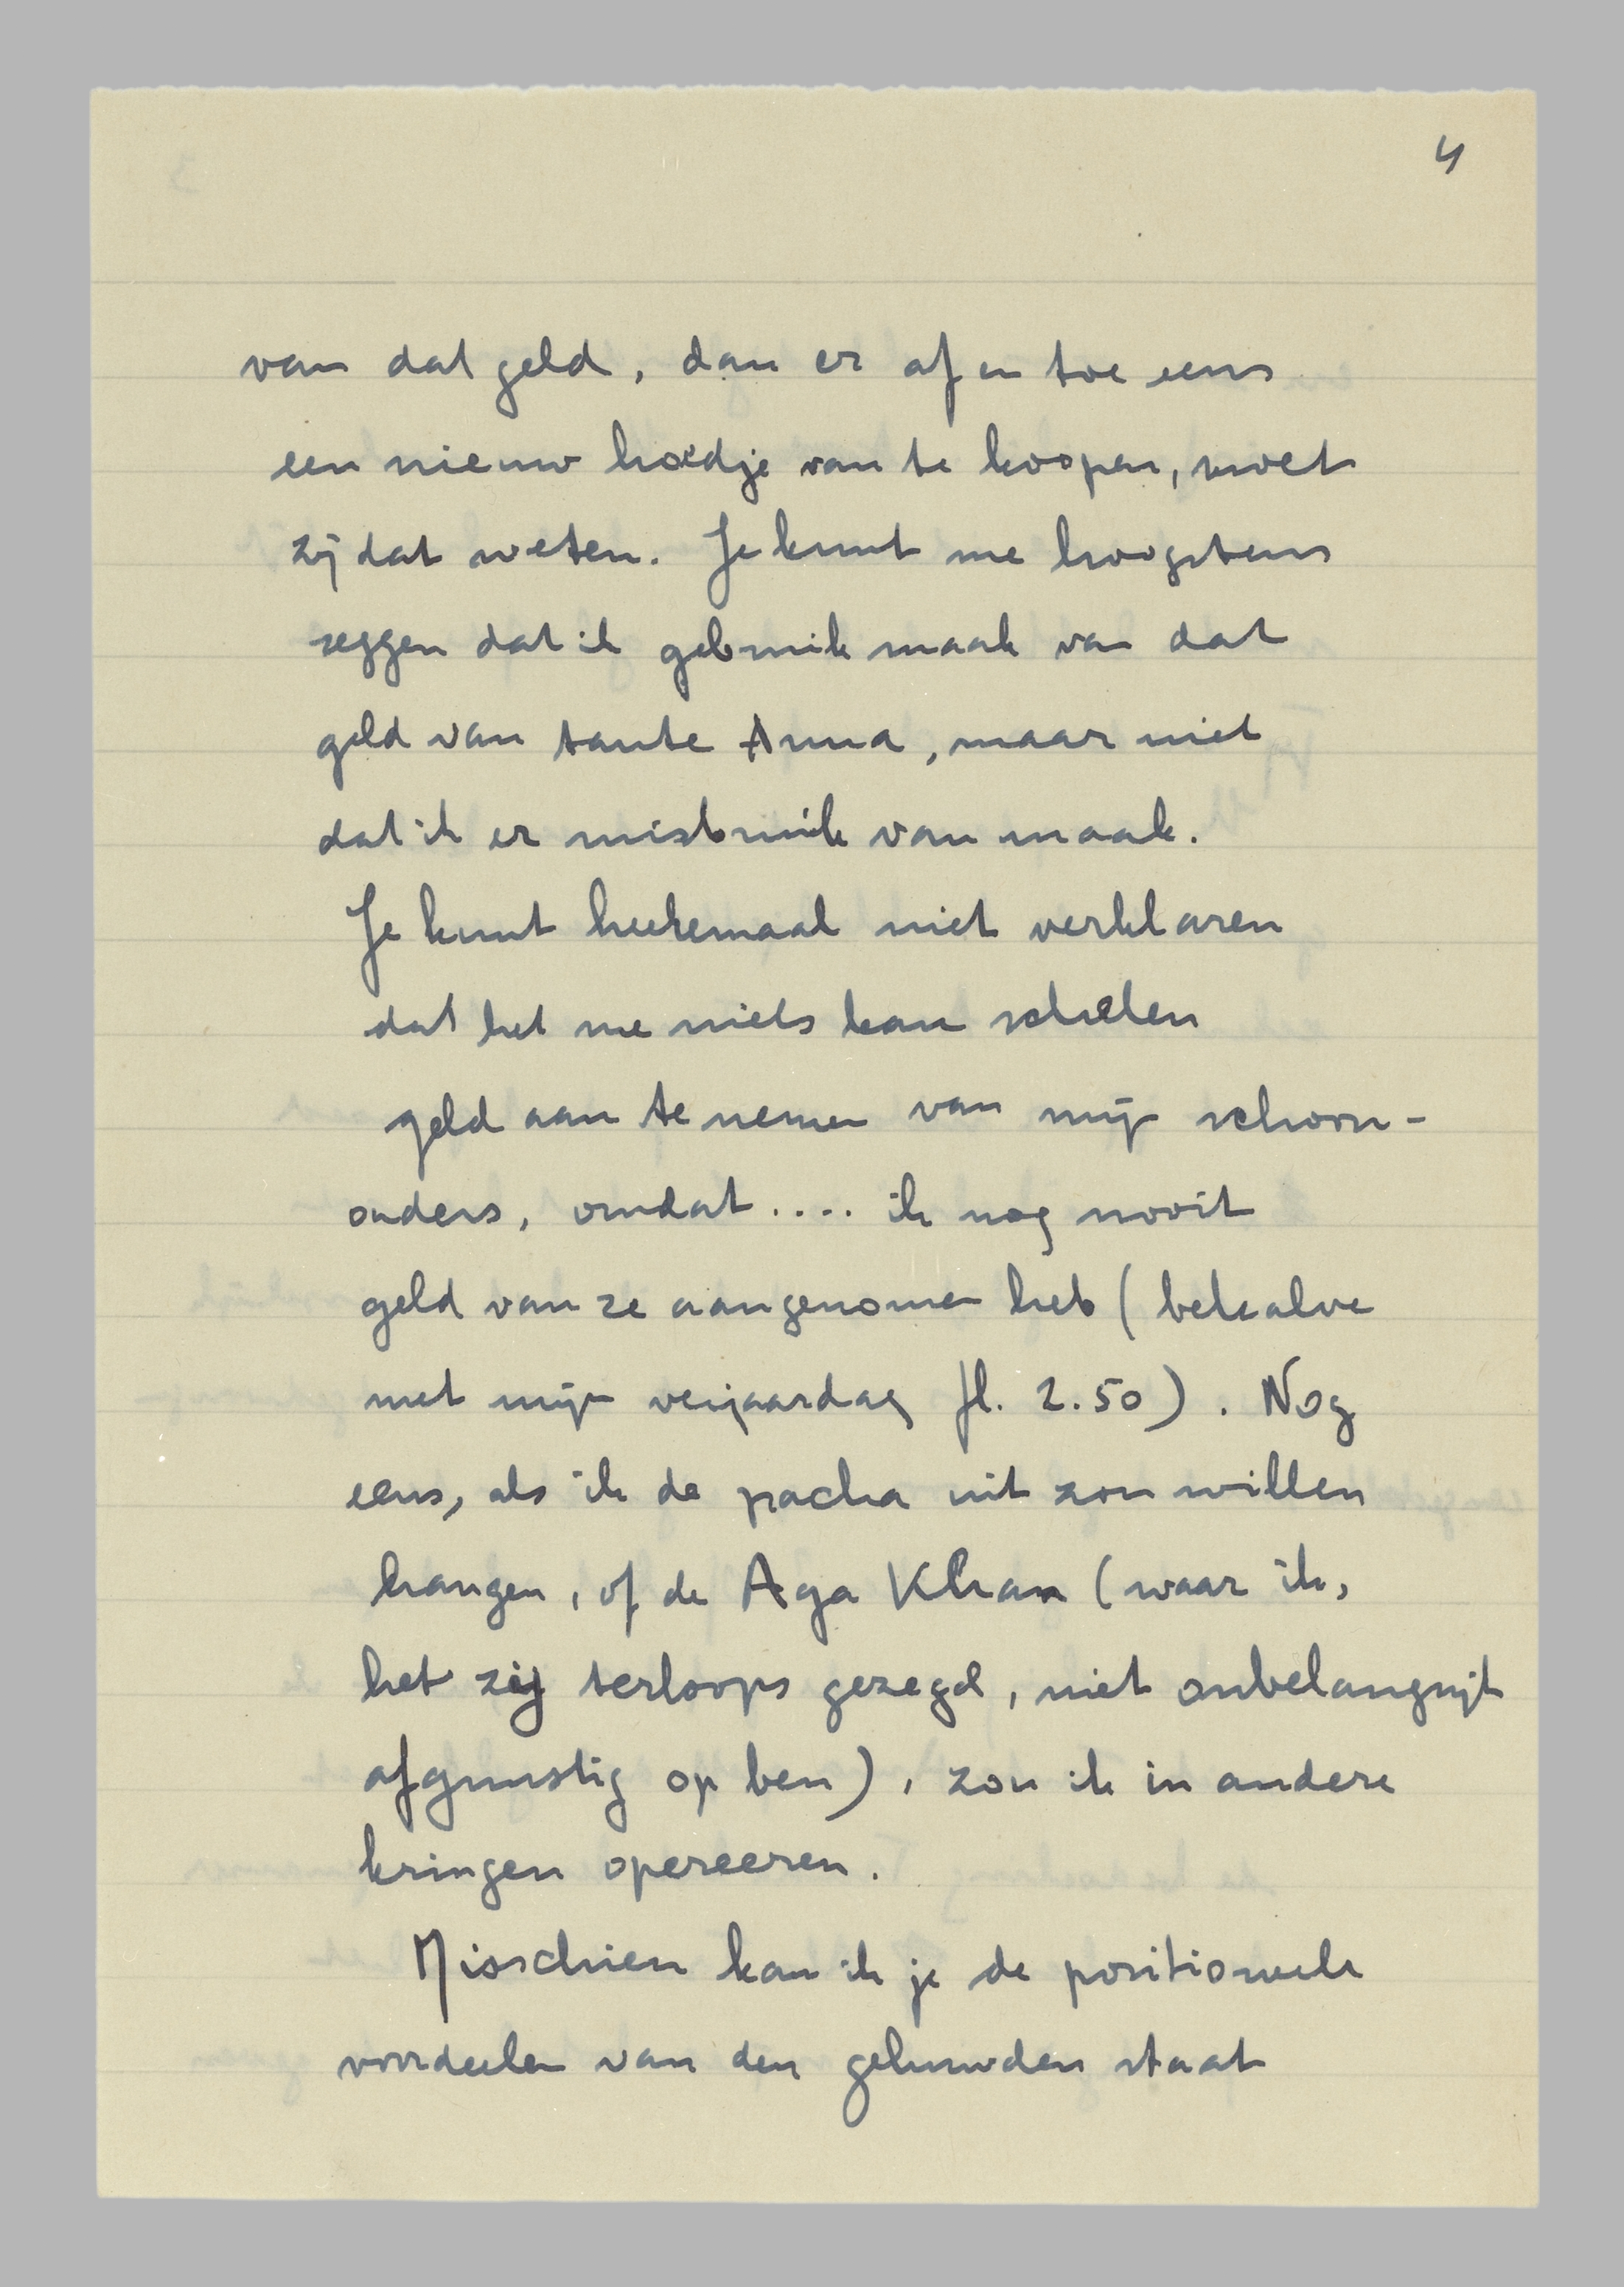 4
van dat geld, dan er af en toe eens
een nieuw hoedje van te koopen, moet
zij dat weten. Je kunt me hoogstens
zeggen dat ik gebruik maak van dat
geld van tante Anna, maar niet
dat ik er misbruik van maak.
Je kunt heelemaal niet verklaren
dat het me niets kan schelen
geld aan te nemen van mijn schoon-
ouders, omdat .... ik nog nooit
geld van ze aangenomen heb (behalve
met mijn verjaardag fl. 2.50). Nog
eens, als ik de pacha uit zou willen
hangen, of de Aga Khan (waar ik,
het zij terloops gezegd, niet onbelangrijk
afgunstig op ben), zou ik in andere
kringen opereeren.
Misschien kan ik je de positioneele
voordeelen van den gehuwden staat